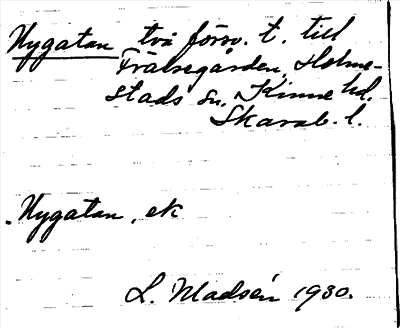 Nygatan två försv. t. till
Frälsegården, Holme-
stads sn. Kinne hd.
Skarab. l.
Nygatan, ek
L. Madsén 1930.